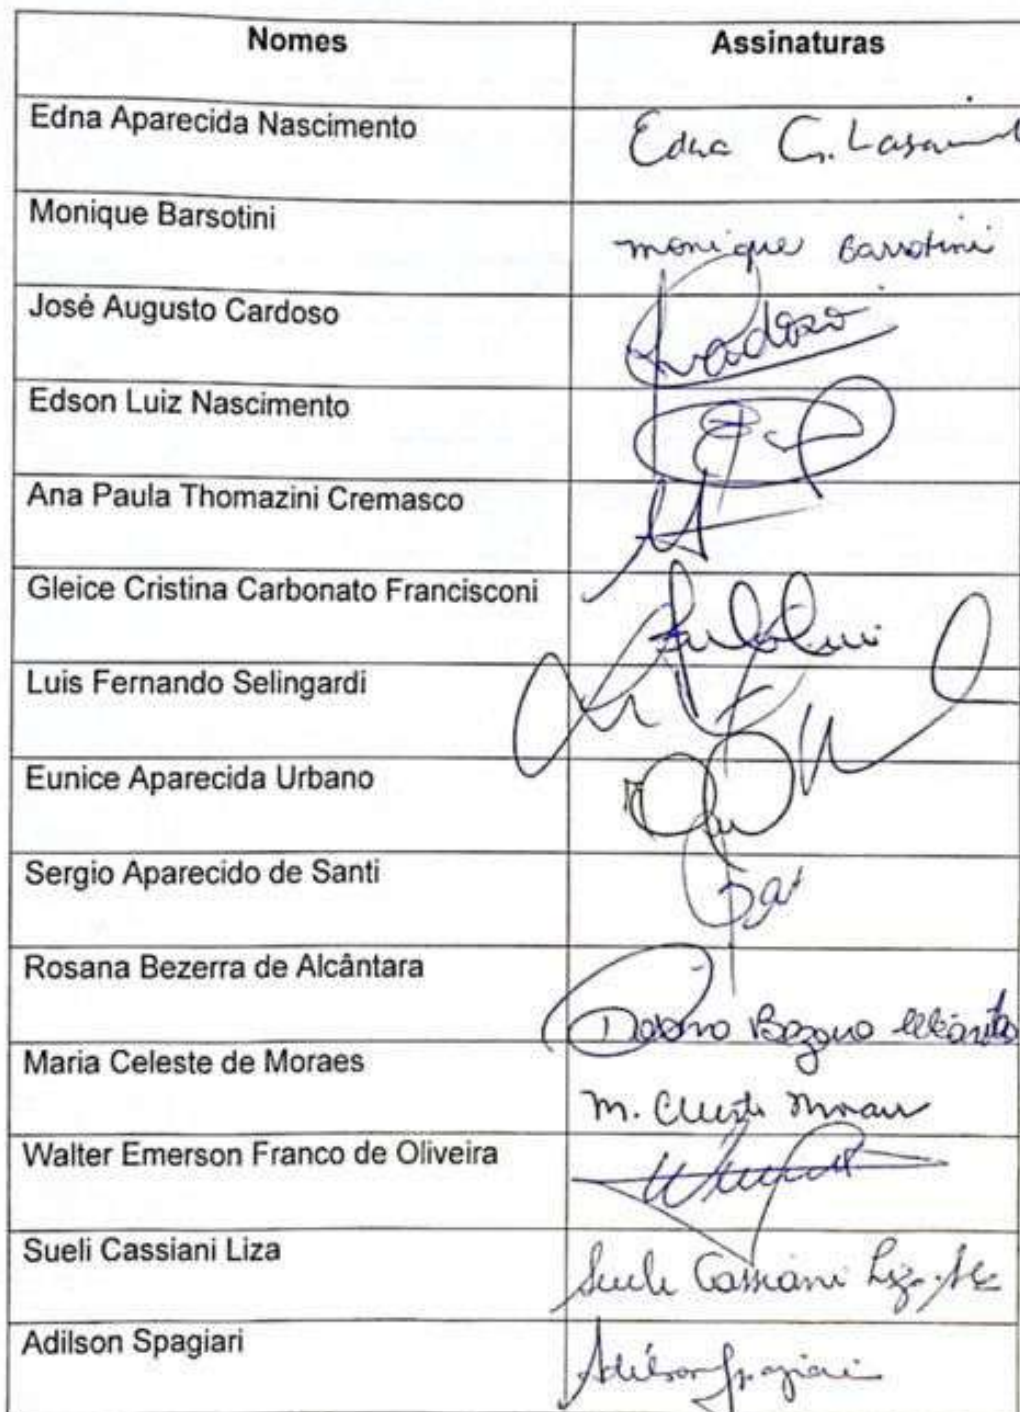 Nomes Assinaturas
Edna Aparecida Nascimento Edna
Monique Barsotini monique Barsotini
José Augusto Cardoso Cardoso
Edson Luiz Nascimento
Ana Paula Thomazini Cremasco
Gleice Cristina Carbonato Francisconi
Luis Fernando Selingardi
Eunice Aparecida Urbano
Sergio Aparecido de Santi
Rosana Bezerra de Alcântara
Maria Celeste de Moraes M. Celeste Moraes
Walter Emerson Franco de Oliveira
Sueli Cassiani Liza Sueli Cassiani Liza
Adilson Spagiari Adilson Spagiari